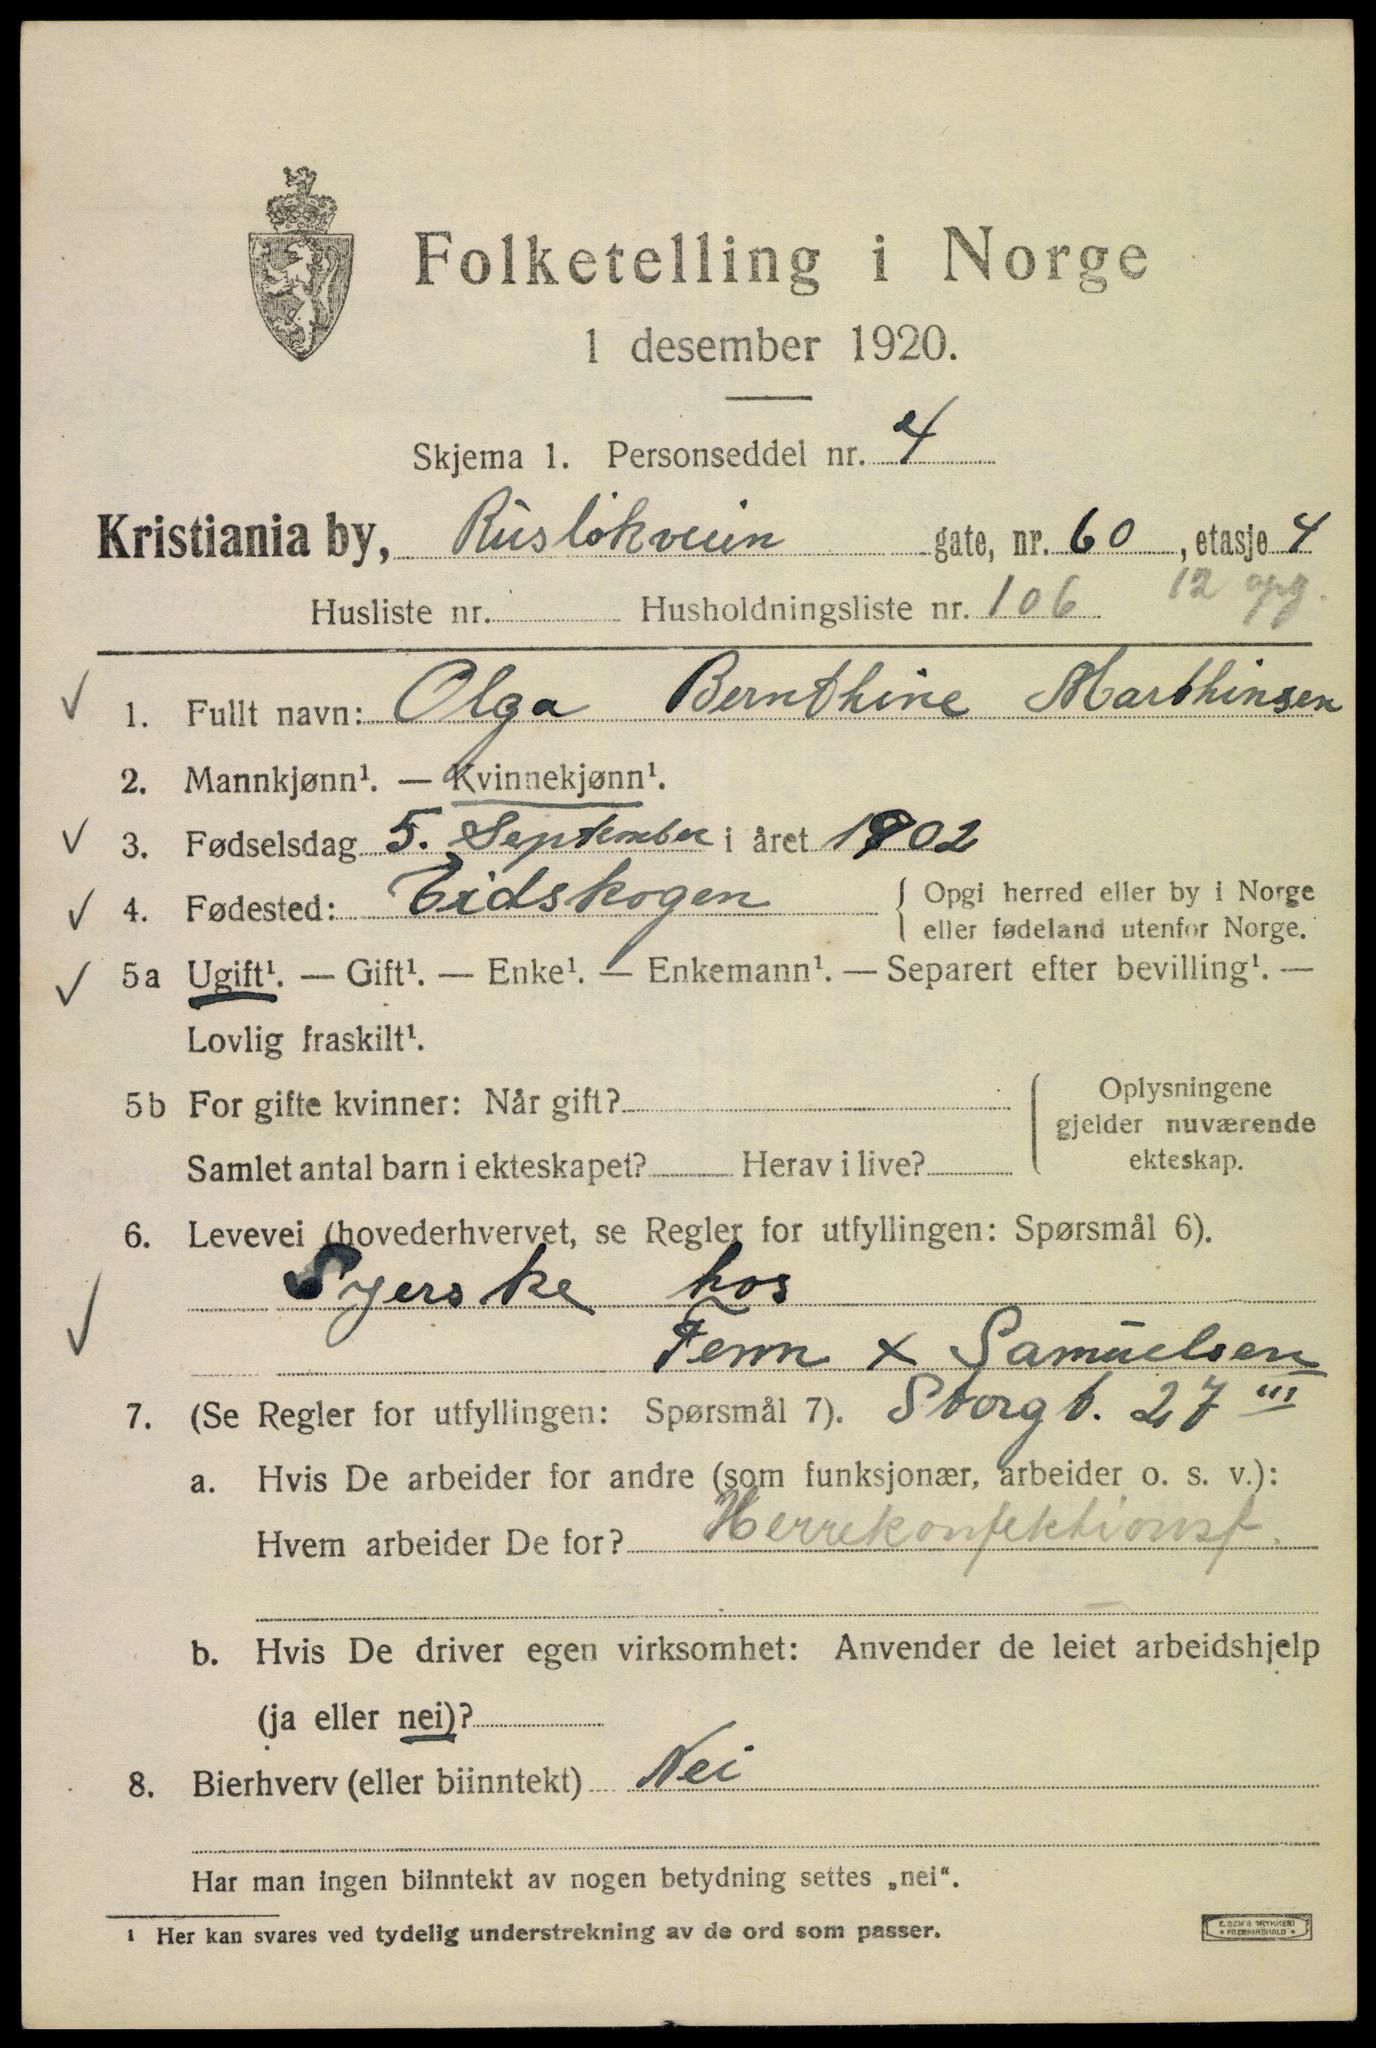 Folketelling i Norge
1 desember 1920.
Skjema 1. Personseddel nr. 4
Kristiania by, Rusløkveien gate, nr. 60, etasje 4
Husliste nr. Husholdningsliste nr. 106 12 opg.
1. Fullt navn: Olga Bernthine Marthinsen
2. Mannkjønn¹. — Kvinnekjønn¹.
3. Fødselsdag 5. September i året 1902
4. Fødested: Eidskogen { Opgi herred eller by i Norge
eller fødeland utenfor Norge.
5a Ugift¹. — Gift¹. — Enke¹. — Enkemann¹. — Separert efter bevilling¹. —
Lovlig fraskilt¹.
5b For gifte kvinner: Når gift? { Oplysningene
gjelder nuværende
Samlet antal barn i ekteskapet? Herav i live? ekteskap.
6. Levevei (hovederhvervet, se Regler for utfyllingen: Spørsmål 6).
Syerske hos
Fenn x Samuelsen
7. (Se Regler for utfyllingen: Spørsmål 7). Storgt. 27 III
a. Hvis De arbeider for andre (som funksjonær, arbeider o. s. v.):
Hvem arbeider De for? Herrekonfektionsf.
b. Hvis De driver egen virksomhet: Anvender de leiet arbeidshjelp
(ja eller nei)?
8. Bierhverv (eller biinntekt) Nei
Har man ingen biinntekt av nogen betydning settes „nei“.
¹ Her kan svares ved tydelig understrekning av de ord som passer.
E. SEM'S TRYKKERI
* FREDRIKSHALD *